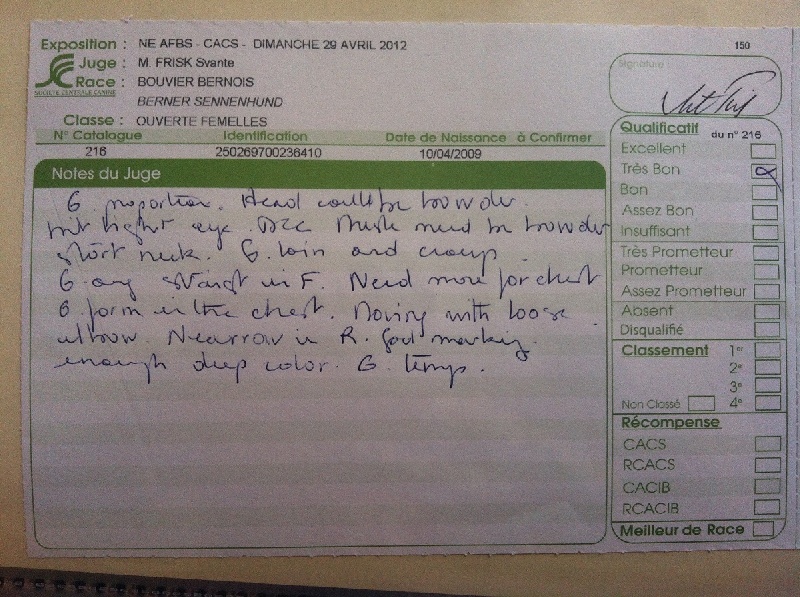 Exposition : NE AFBS - CACS - DIMANCHE 29 AVRIL 2012
150
Juge : M. FRISK Svante
Race : BOUVIER BERNOIS
SOCIETE CENTRALE CANINE
BERNER SENNENHUND
Classe : OUVERTE FEMELLES
N° Catalogue Identification Date de Naissance à Confirmer
216 250269700236410 10/04/2009
Notes du Juge
G proportion. Head could be
light eye. need be
short neck. G. loin and croup.
G ang in F. Need more forchest
G form in the chest. Moving with loose
elbow. in R. God marking.
enough deep color. G. temp.
Signature :
Qualificatif du n° 216
Excellent
Très Bon
Bon
Assez Bon
Insuffisant
Très Prometteur
Prometteur
Assez Prometteur
Absent
Disqualifié
Classement 1er
2e
3e
Non Classé 4e
Récompense
CACS
RCACS
CACIB
RCACIB
Meilleur de Race